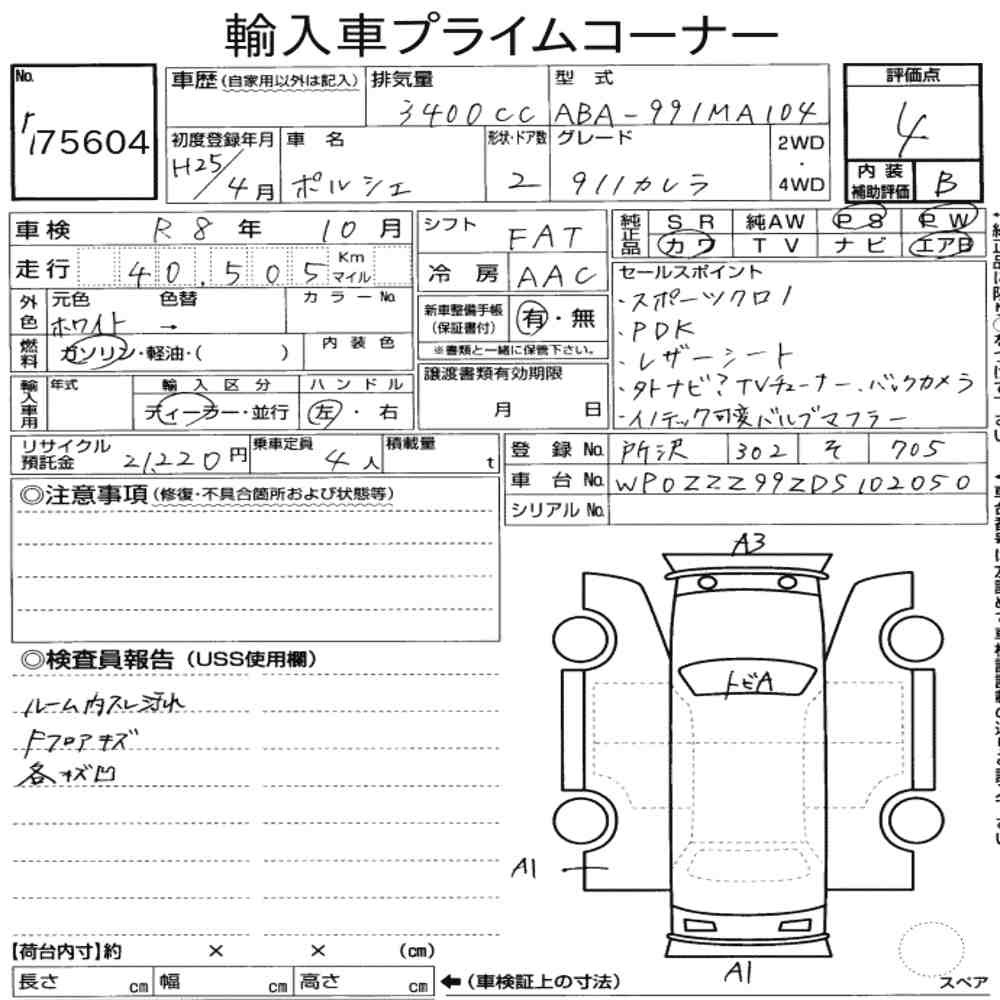 輸入車プライムコーナー
No.
175604
車歴(自家用以外は記入)
排気量
3400CC
型式
ABA-991MA104
初度登録年月
H25/4月
車名
ポルシェ
形状・ドア数
2
グレード
911カレラ
2WD
・
4WD
評価点
4
内装
補助評価
B
車検 R8年 10月
走行 40,505 Km マイル
外色
元色
ホワイト
色替
→
カラーNo.
燃料
ガソリン・軽油・( )
内装色
輸入車用
年式
輸入区分
ディーラー・並行
ハンドル
左・右
シフト FAT
冷房 AAC
新車整備手帳
(保証書付)
有・無
※書類と一緒に保管下さい。
譲渡書類有効期限
月 日
純正品
SR 純AW PS PW
カワ TV ナビ エアB
セールスポイント
・スポーツクロノ
・PDK
・レザーシート
・タトナビ?TVチューナー、バックカメラ
・イノテック可変バルブマフラー
リサイクル
預託金
21,220円
乗車定員
4人
積載量
t
登録No. 所沢 302 そ 705
車台No. WP0ZZZ99ZDS102050
シリアルNo.
◎注意事項(修復・不具合箇所および状態等)
◎検査員報告(USS使用欄)
ルーム内スレ汚れ
Fフロアキズ
各キズ凹
A3
トビA
A1
A1
【荷台内寸】約 × × (cm)
長さ cm 幅 cm 高さ cm ←(車検証上の寸法)
スペア